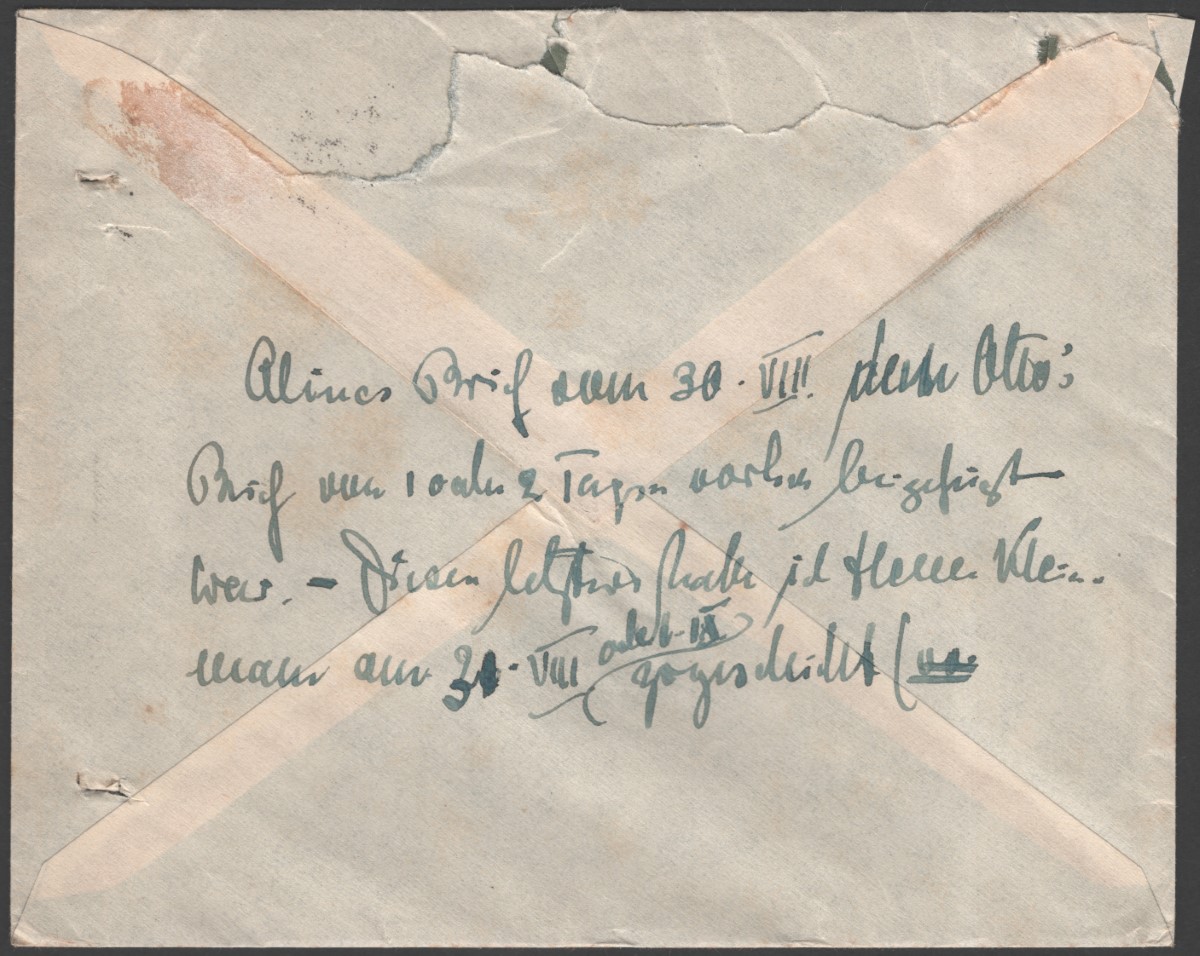 Alines Brief vom 30. VIII. dem Otto's
Brief von 1 oder 2 Tagen vorher beigefügt
war. – Diesen letzteren habe ich Herrn Klein-
mann am 31. VIII oder 1. IX zugeschickt (